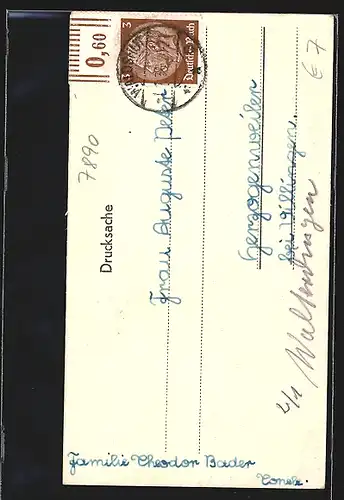 0,60
3
Deutsches Reich
€ 7
7890
Drucksache
Frau Auguste
Herzogenweiler
bei Villingen.
2/1
Familie Theodor Bader